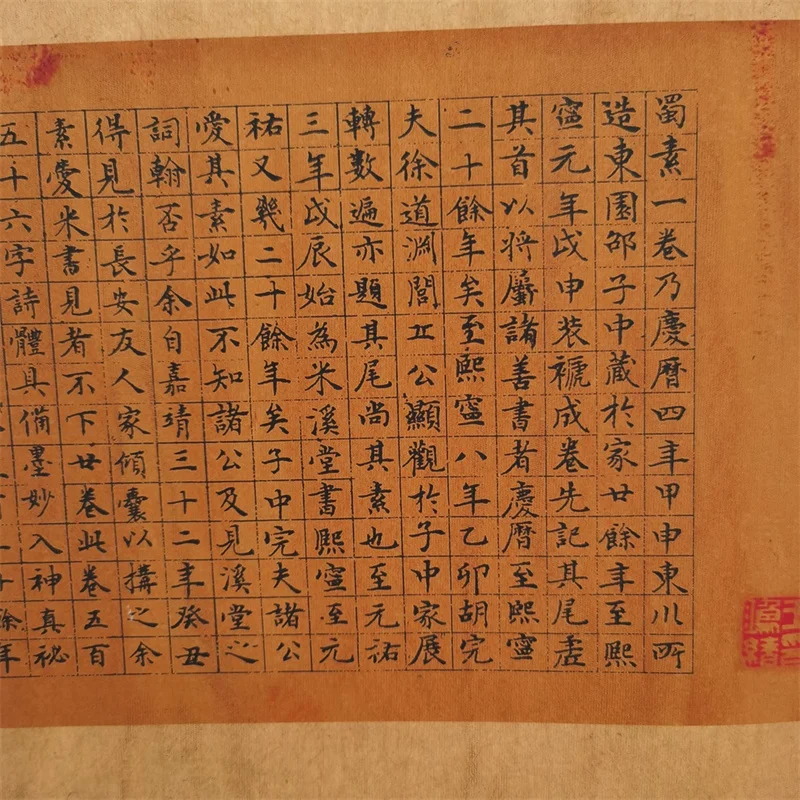 蜀素一卷乃慶曆四年甲申東川所
造東園邵子中藏於家廿餘年至熙
寧元年戊申装褫成卷先記其尾虗
其首以將屬諸善書者慶曆至熙寧
二十餘年矣至熙寧八年乙卯胡完
夫徐道淵閭丘公顯觀於子中家展
轉數遍亦題其尾尚其素也至元祐
三年戊辰始為米溪堂書熙寧至元
祐又幾二十餘年矣子中完夫諸公
愛其素如此不知諸公及見溪堂之
詞翰否乎余自嘉靖三十二年癸丑
得見於長安友人家傾囊以搆之余
素愛米書見者不下廿卷此卷五百
五十六字詩體具俻墨妙入神真秘
十餘年